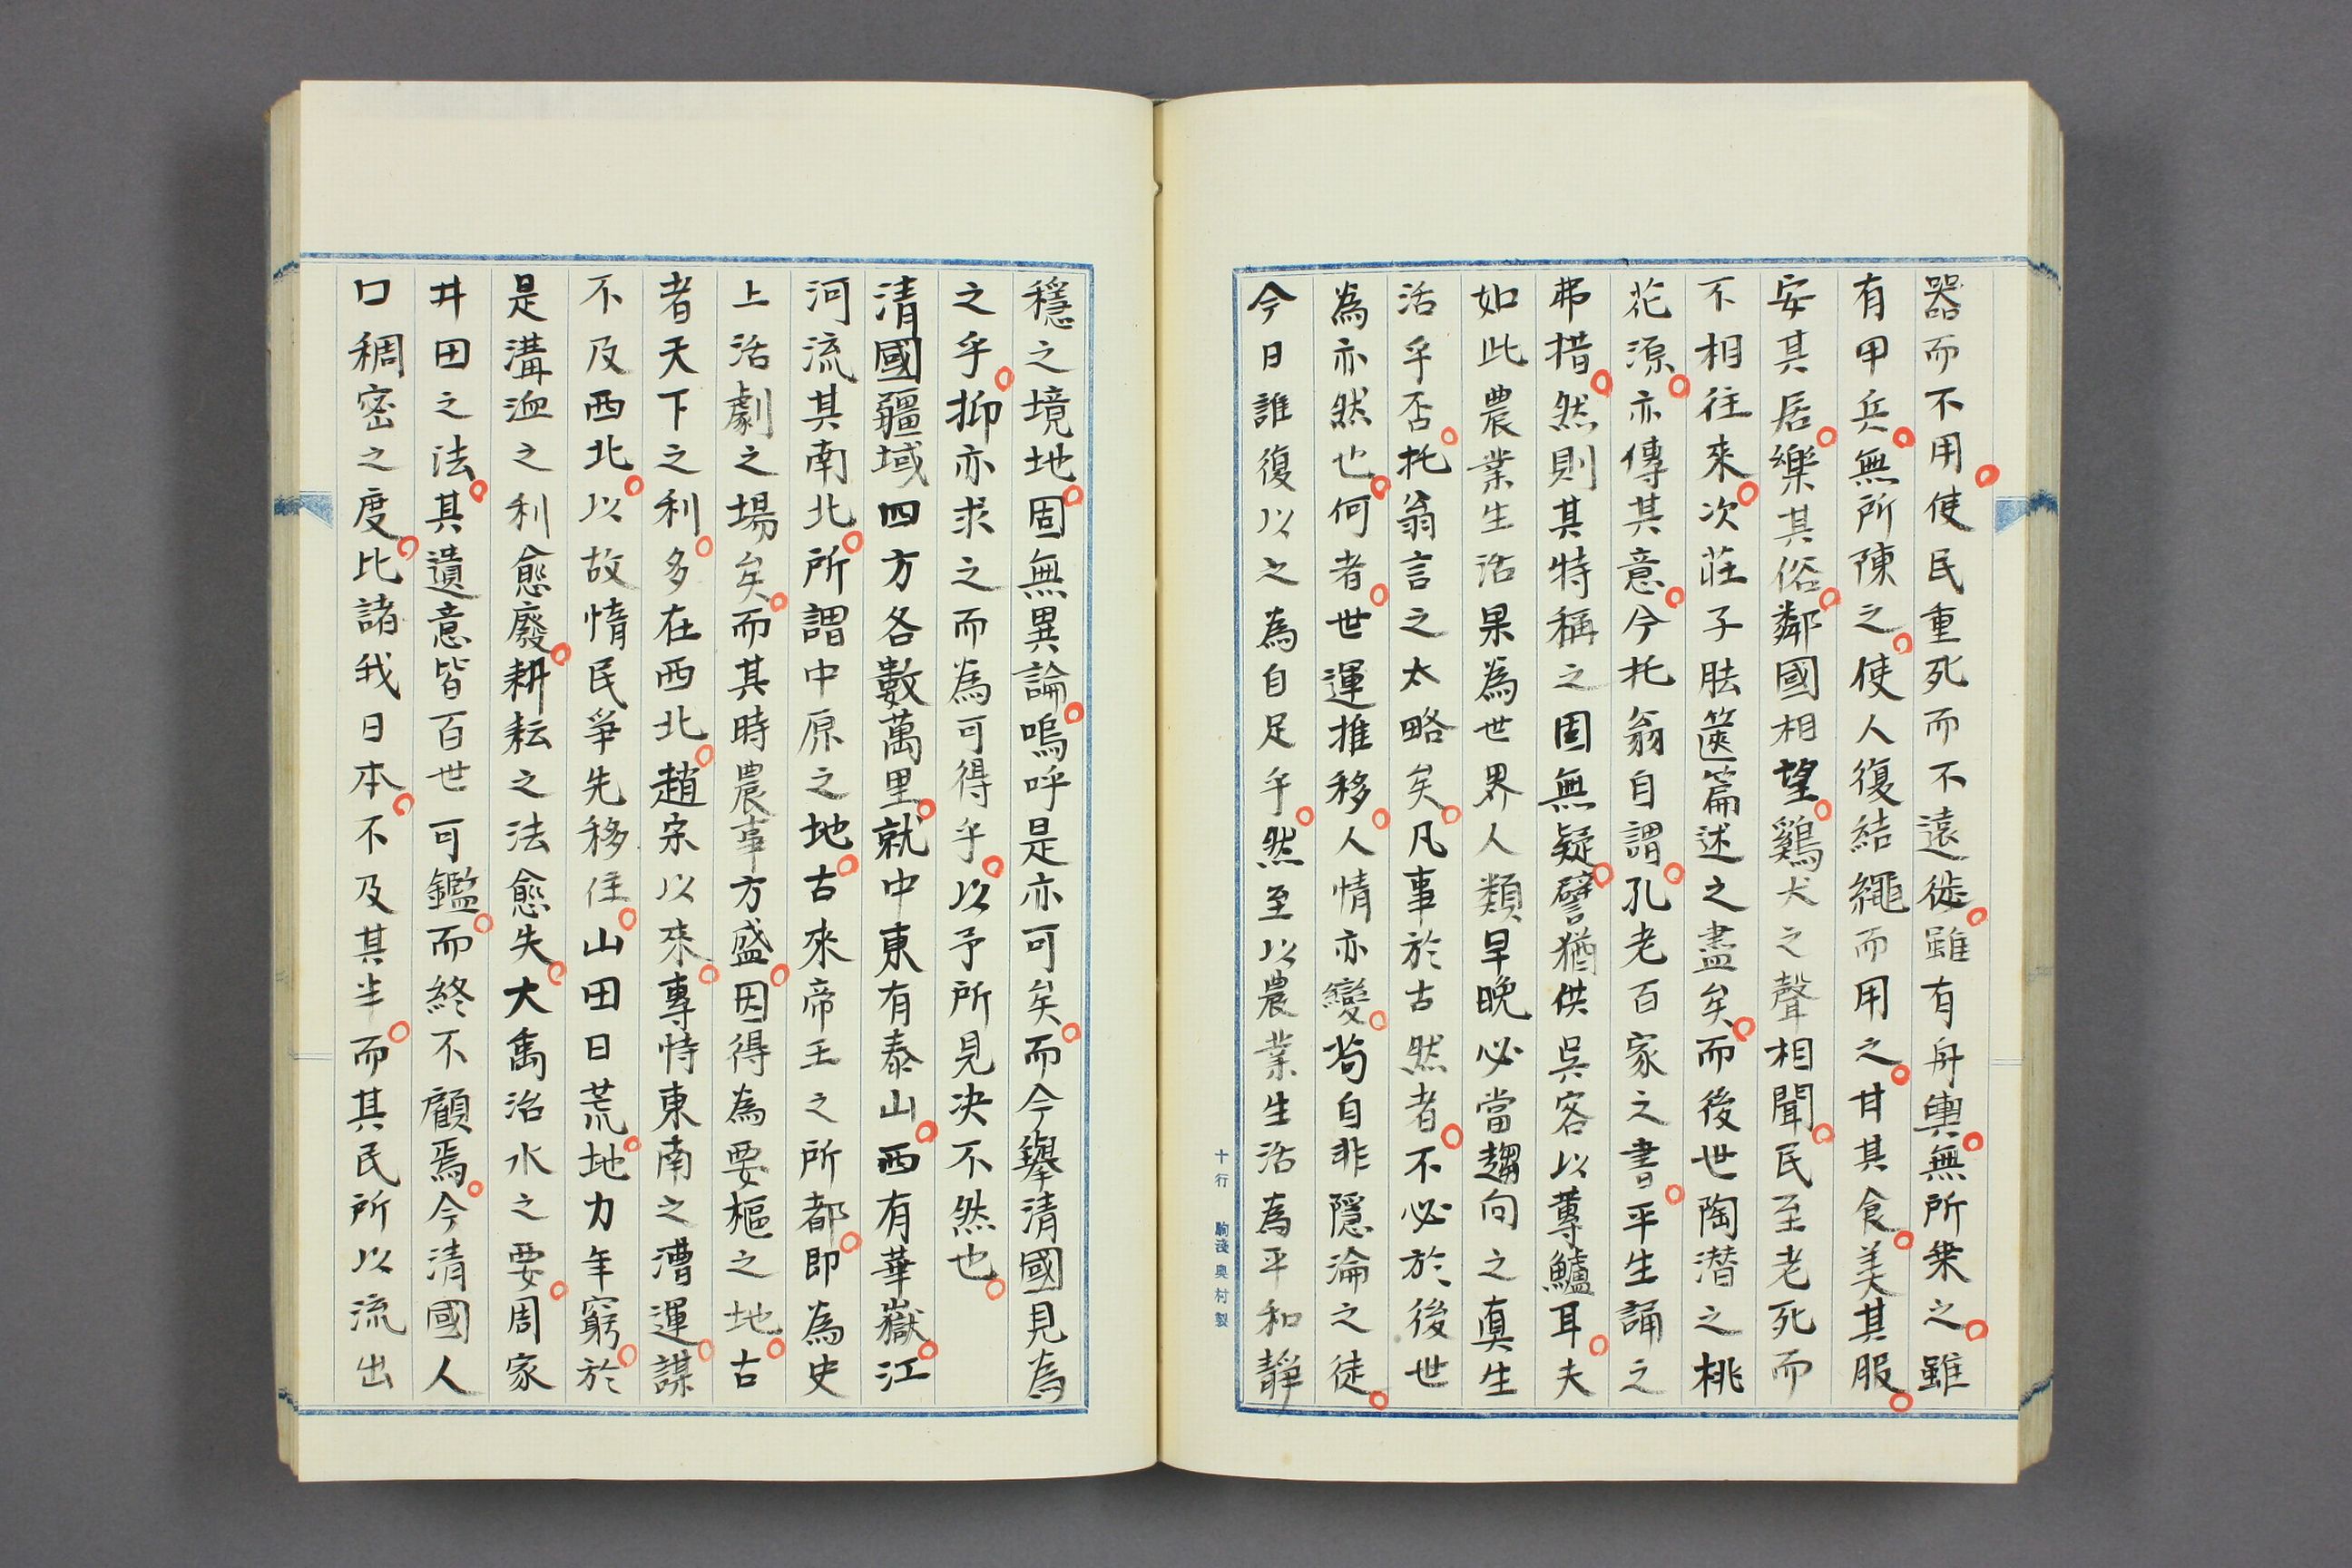 器而不用。使民重死而不遠徙。雖有舟輿。無所乗之。雖
有甲兵。無所陳之。使人復結繩而用之。甘其食。美其服。
安其居。樂其俗。鄰國相望。鷄犬之聲相聞。民至老死而
不相往来。次莊子胠篋篇述之盡矣。而後世陶潜之桃
花源。亦傳其意。今托翁自謂。孔老百家之書。平生誦之
弗措。然則其特稱之固無疑。譬猶供呉客以蓴鱸耳。夫
如此農業生活果為世界人類早晩必當趨向之真生
活乎否。托翁言之太略矣。凡事於古然者。不必於後世
為亦然也。何者。世運推移。人情亦變。苟自非隱淪之徒。
今日誰復以之為自足乎。然至以農業生活為平和靜
十行 駒淺奥村製
穩之境地。固無異論。嗚呼是亦可矣。而今擧清國見為
之乎。抑亦求之而為可得乎。以予所見决不然也。
清國疆域四方各數萬里。就中東有泰山。西有華嶽。江
河流其南北。所謂中原之地。古來帝王之所都。即為史
上活劇之場矣。而其時農事方盛。因得為要樞之地。古
者天下之利。多在西北。趙宋以来。專恃東南之漕運。謀
不及西北。以故惰民爭先移住。山田日荒。地力年窮。於
是溝洫之利愈廢。耕耘之法愈失。大禹治水之要。周家
井田之法。其遺意皆百世可鑑。而終不顧焉。今清國人
口稠密之度。比諸我日本。不及其半。而其民所以流出